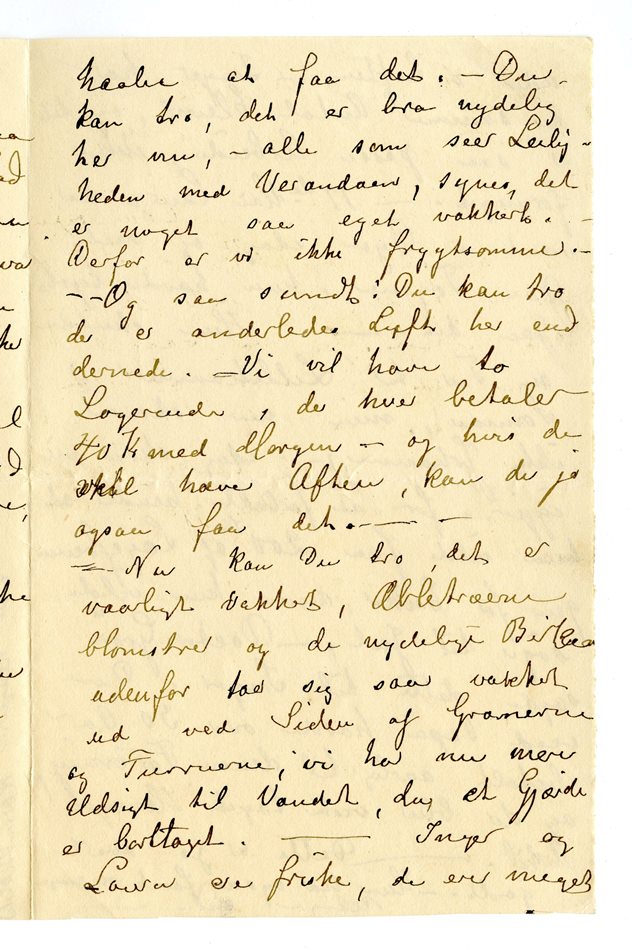 haaber at faa det. – Du
kan tro, det er bra nydelig
her nu, – alle som seer Leilig-
heden med Verandaen, synes, det
er noget saa eget vakkert. –
Derfor er vi ikke frygtsomme. –
– – Og saa sundt! Du kan tro
der er anderledes Luft her end
dernede. – Vi vil have to
Logerende, de hver betaler
40 Kr med Morgen – og hvis de
vil have Aften, kan de jo
ogsaa faa det. – – –
= Nu kan Du tro, det er
vaarligt vakkert, Æbletræerne
blomstrer og de nydelige Birke
udenfor tar sig saa vakkert
ud ved Siden af Granerne
og Furruerne; vi har nu mere
Udsigt til Vandet, da et Gjærde
er borttaget. — Inger og
Laura ere friske, de ere meget